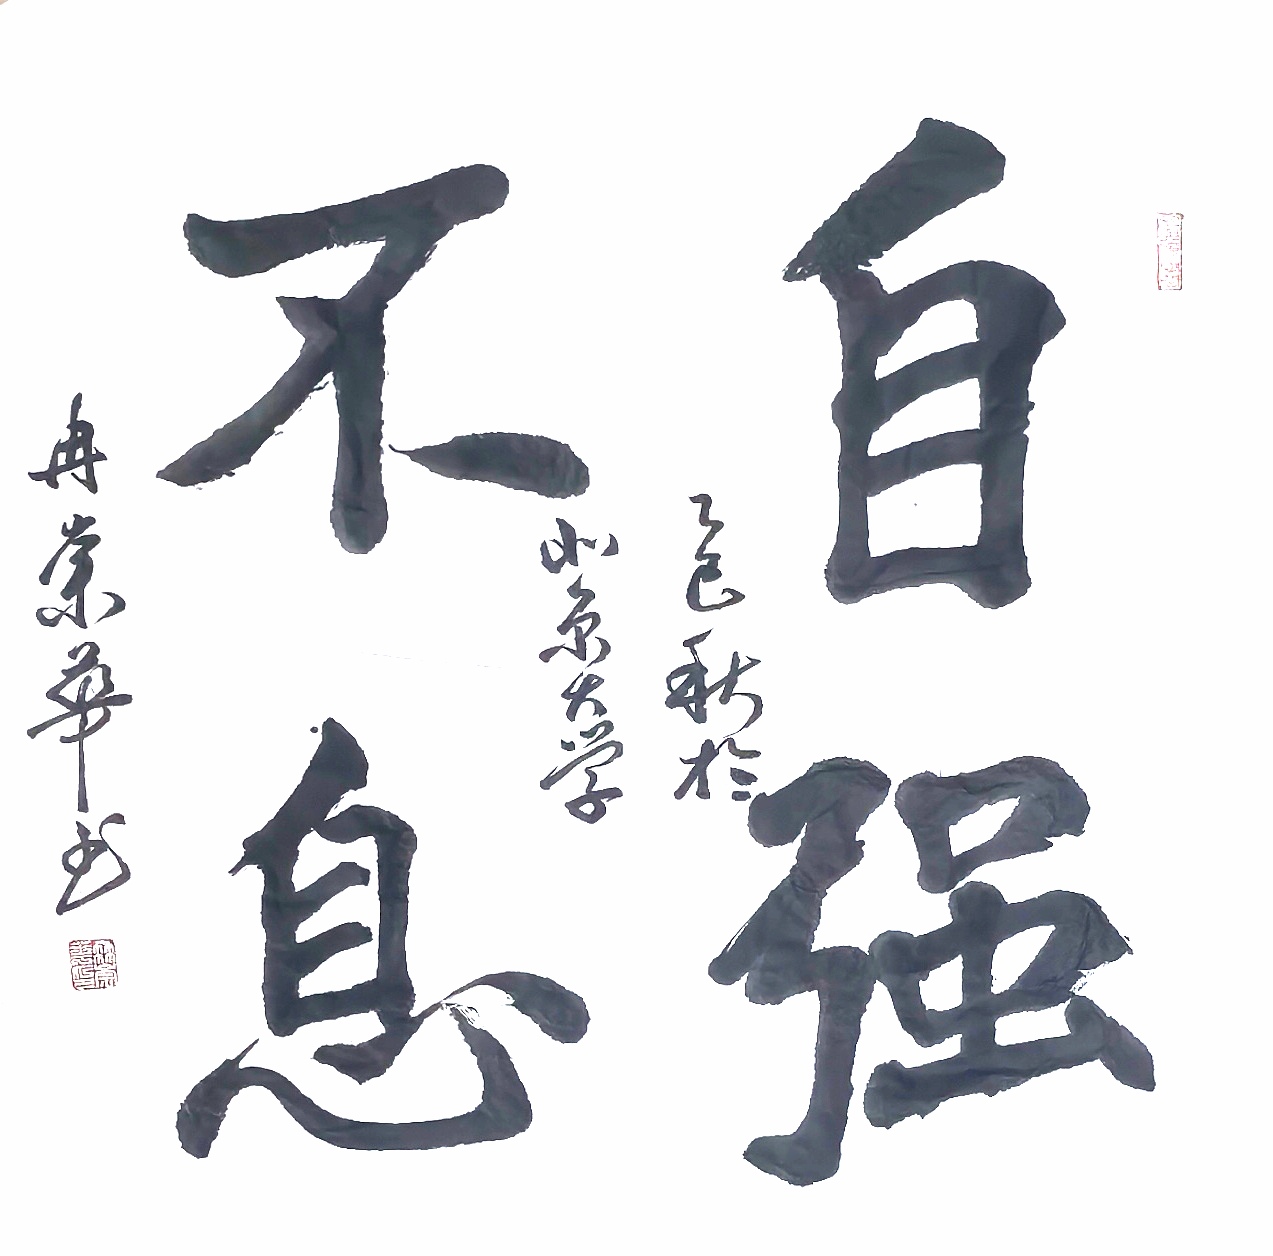 自强
不息
乙巳秋於
北京大学
冉崇華书